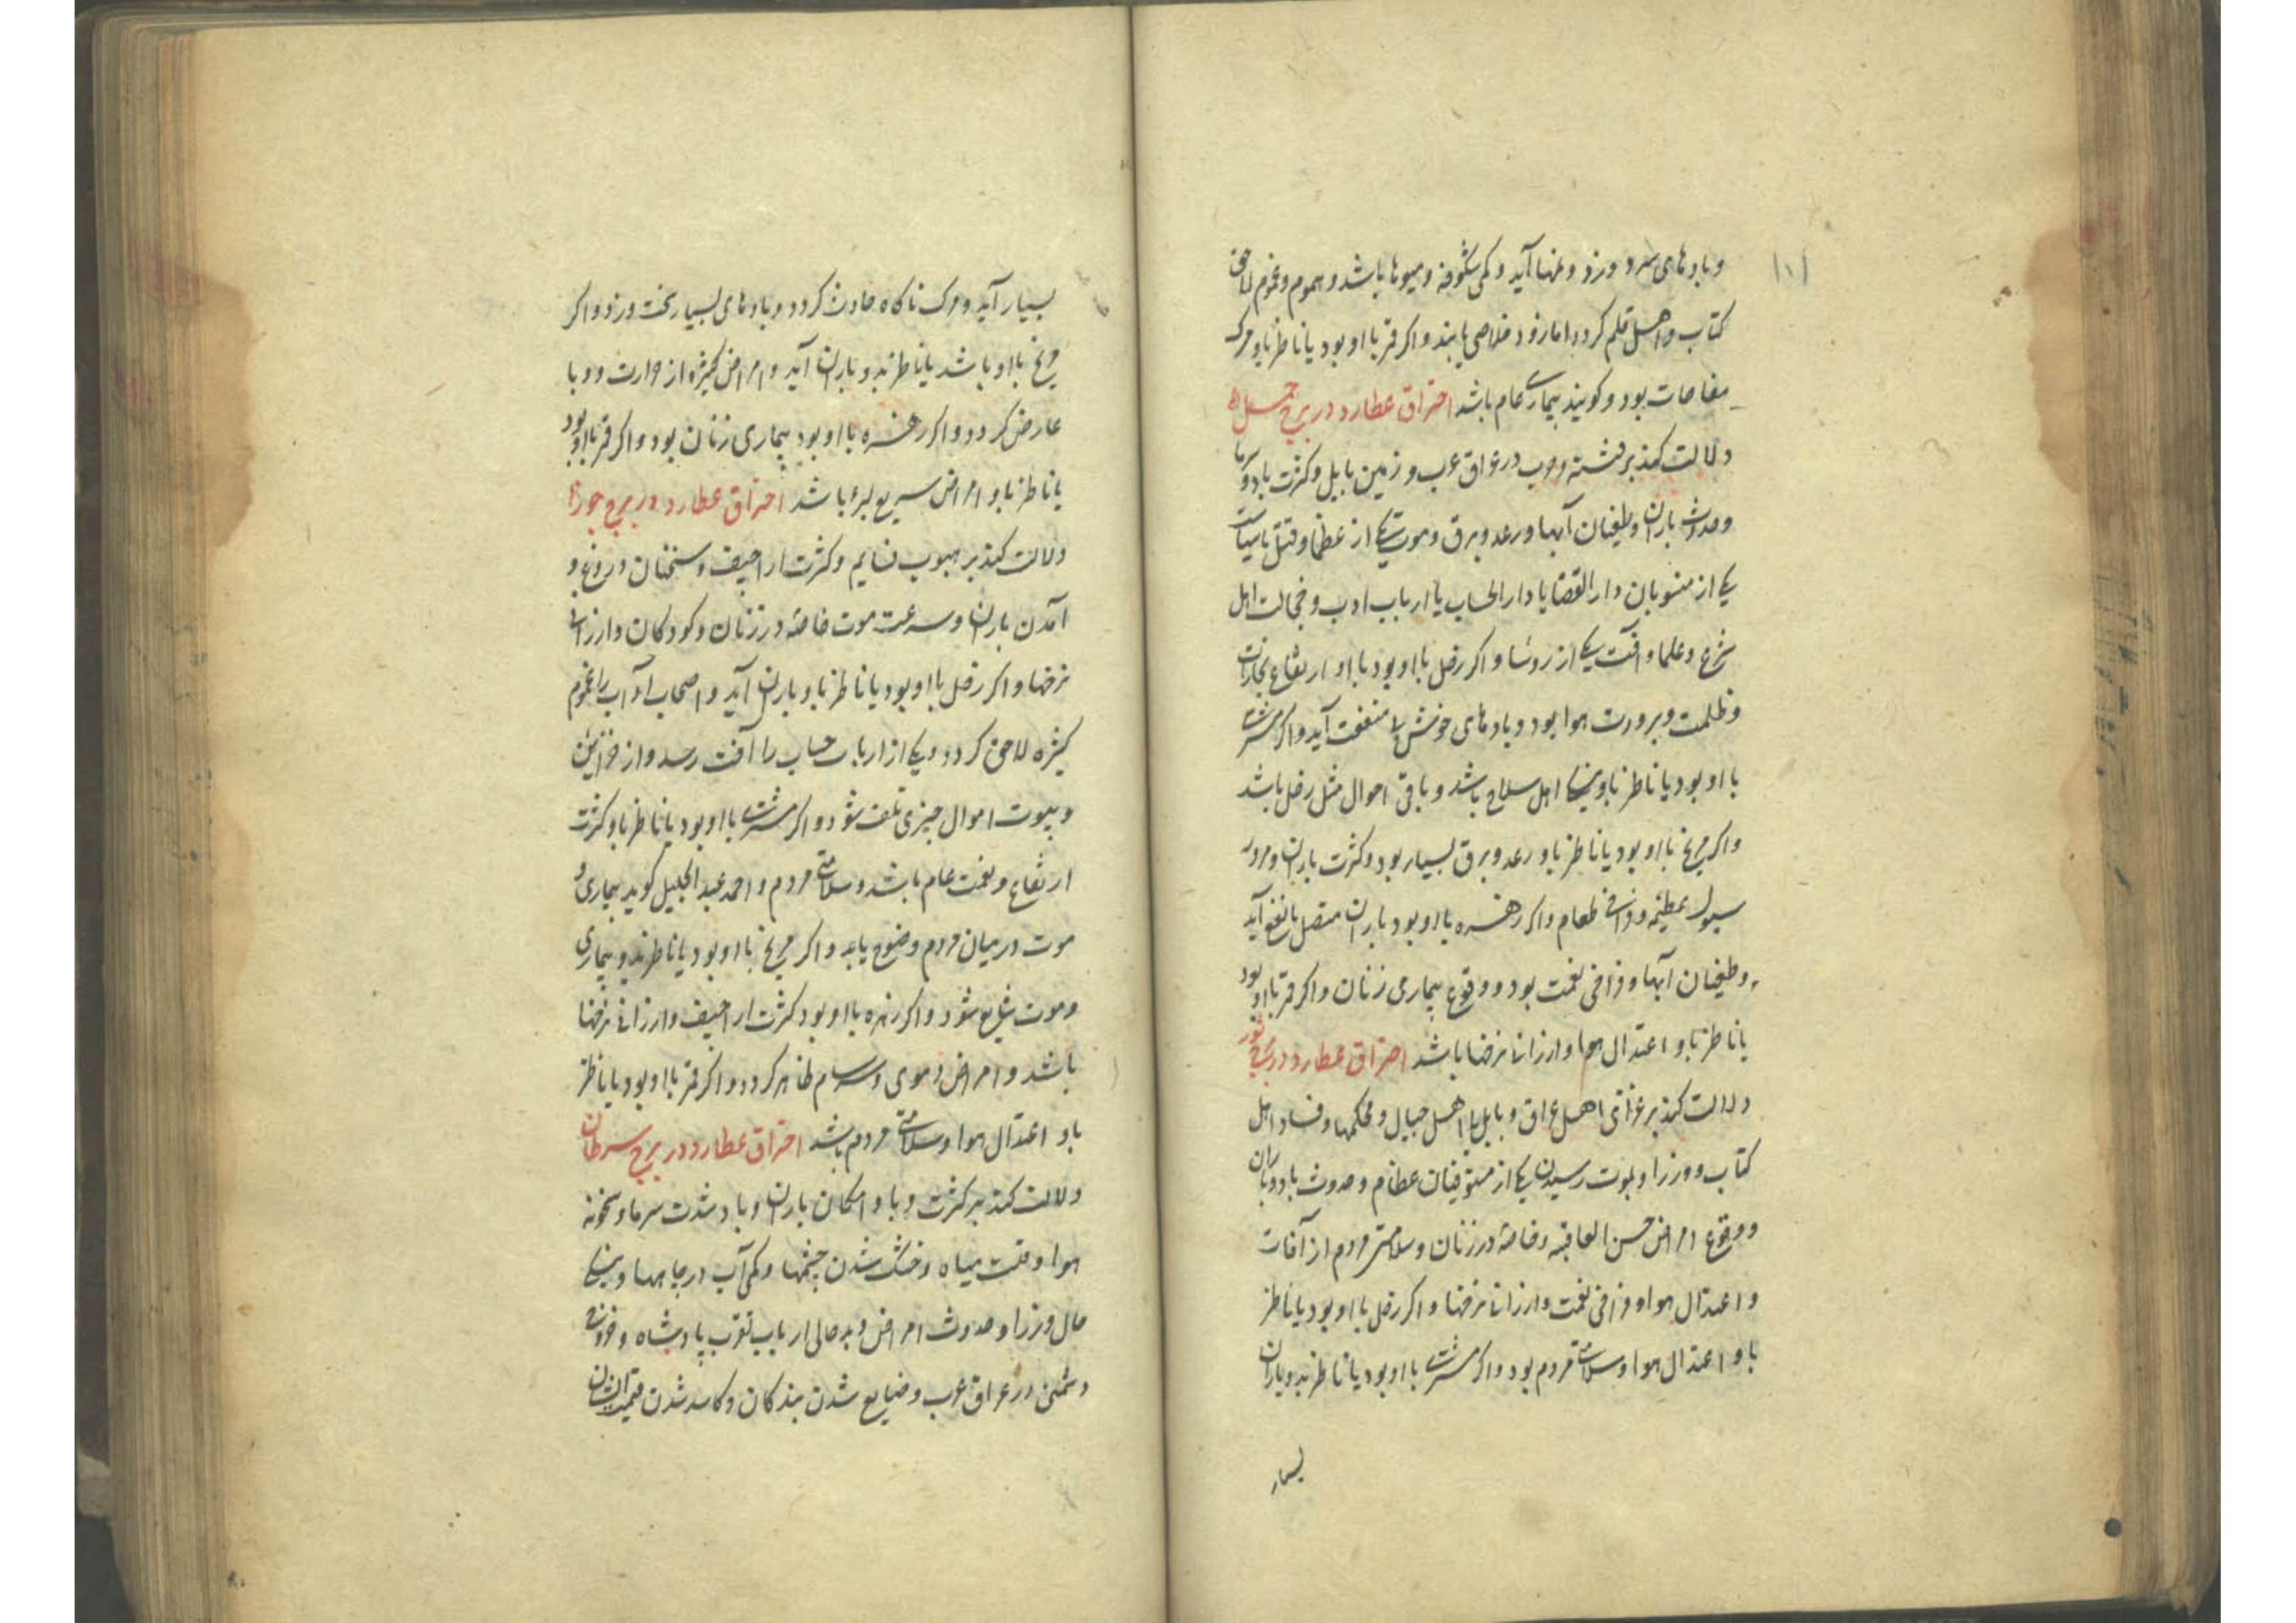 ۱۰۱
و بادهای سرد ورزد و غمها آید و کمی شکوفه و میوها باشد و هموم و غموم لاحق
کتاب و اهل قلم کردد اما زود خلاصی یابند و اکر قمر با او بود یا ناظر باو مرک
مفاجات بود و کویند بیماری عام باشد احتراق عطارد در برج حمل
دلالت کند بر فتنه و حرب در عراق عرب و زمین بابل و کثرت باد و سرما
و حدوث باران و طغیان آبها و رعد و برق و موت یکی از عظما و قتل با سیاست
یکی از منسوبان دار القضا یا دار الحساب یا ارباب ادب و خجالت اهل
شرع و علما و آفت یکی از روسا و اکر زحل با او بود با او ارتفاع بخارات
و ظلمت و برودت هوا بود و بادهای خوش با منفعت آید و اکر مشتری
با او بود یا ناظر باو نیکی اهل سلاح باشد و باقی احوال مثل زحل باشد
و اکر مریخ با او بود یا ناظر باو رعد و برق بسیار بود و کثرت باران و مرور
سیول عظیمه و فراخی طعام و اکر زهره با او بود باران متصل با نفع آید
و طغیان آبها و فراخی نعمت بود و وقوع بیماری زنان و اکر قمر با او بود
یا ناظر باو اعتدال هوا و ارزانی نرخها باشد احتراق عطارد در برج ثور
دلالت کند بر اهل عراق و بابل با اهل جبال و محکمها و فساد اهل
کتاب و وزرا و بموت رسیدن یکی از مستوفیان عظام و حدوث باد و باران
و وقوع امراض حسن العاقبه و خاصه در زنان و سلامتی مردم از آفات
و اعتدال هوا و فراخی نعمت و ارزانی نرخها و اکر زحل با او بود یا ناظر
باو اعتدال هوا و سلامتی مردم بود و اکر مشتری با او بود یا ناظر بدو باران
بسیار
بسیار آید و مرک ناکاه حادث کردد و بادهای بسیار سخت ورزد و اکر
مریخ با او باشد یا ناظر بدو باران آید و امراض کثیره از حرارت و وبا
عارض کردد و اکر زهره با او بود بیماری زنان بود و اکر قمر با او بود
یا ناظر باو امراض سریع البرء باشد احتراق عطارد در برج جوزا
دلالت کند بر هبوب نسایم و کثرت اراجیف و سخنان دروغ و
آمدن باران و سرعت موت خاصه در زنان و کودکان و ارزانی
نرخها و اکر زحل با او بود یا ناظر باو باران آید و اصحاب آداب را غموم
کثیره لاحق کردد و یکی از ارباب حساب را آفت رسد و از خزاین
و بیوت اموال چیزی تلف شود و اکر مشتری با او بود یا ناظر باو کثرت
ارتفاع و نعمت عام باشد و سلامتی مردم و احمد عبد الجلیل کوید بیماری و
موت در میان مردم وضوح یابد و اکر مریخ با او بود یا ناظر بدو بیماری
و موت شایع شود و اکر زهره با او بود کثرت اراجیف و ارزانی نرخها
باشد و امراض دموی و سرسام ظاهر کردد و اکر قمر با او بود یا ناظر
باو اعتدال هوا و سلامتی مردم باشد احتراق عطارد در برج سرطان
دلالت کند بر کثرت وبا و امکان باران و باد شدت سرما و سخونة
هوا و قلت میاه و خشک شدن چشمها و کمی آب در چاهها و نیکی
حال وزرا و حدوث امراض و بد حالی ارباب تقرب پادشاه و فزونی
دشمن در عراق عرب و ضایع شدن بندکان و کاسد شدن قیمت ایشان